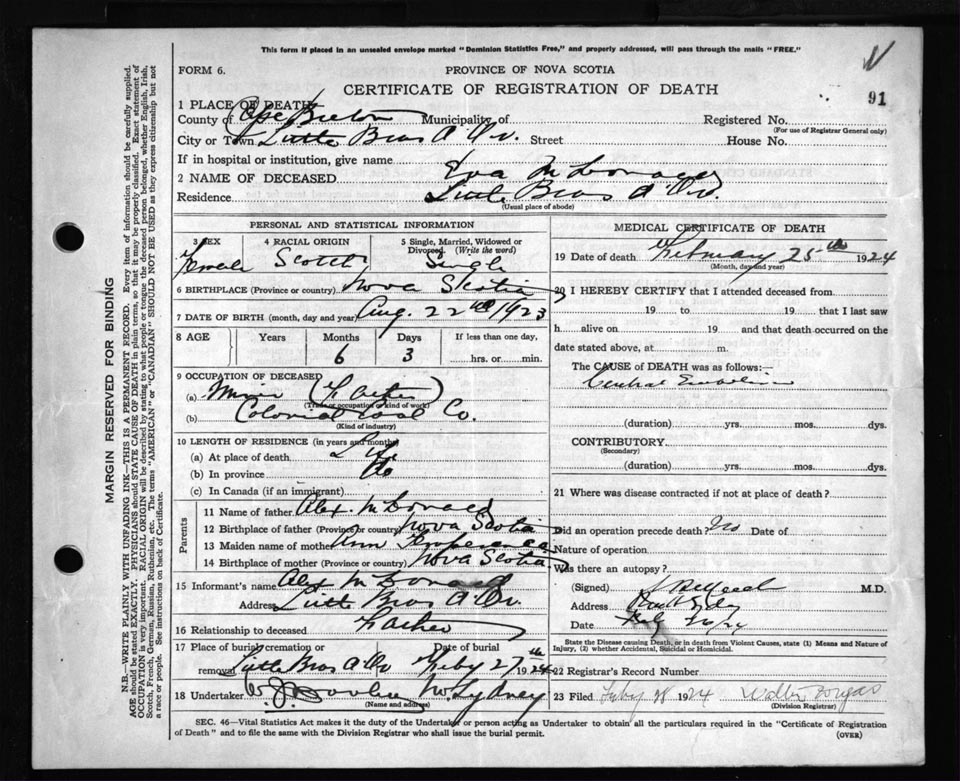 This form if placed in an unsealed envelope marked "Dominion Statistics Free," and properly addressed, will pass through the mails "FREE."
FORM 6.
PROVINCE OF NOVA SCOTIA
CERTIFICATE OF REGISTRATION OF DEATH
91
1 PLACE OF DEATH
County of Cape Breton Municipality of Registered No.
(For use of Registrar General only)
City or Town Little Bras d'Or. Street House No.
If in hospital or institution, give name
2 NAME OF DECEASED Eva McDonald
Residence Little Bras d'Or.
(Usual place of abode)
PERSONAL AND STATISTICAL INFORMATION
3 SEX 4 RACIAL ORIGIN 5 Single, Married, Widowed or Divorced. (Write the word)
Female Scotch Single
6 BIRTHPLACE (Province or country) Nova Scotia
7 DATE OF BIRTH (month, day and year) Aug. 22nd 1923
8 AGE Years Months Days If less than one day,
6 3 hrs. or min.
9 OCCUPATION OF DECEASED
(a) Miner (Father)
(Trade or occupation or kind of work)
(b) Colonial Coal Co.
(Kind of industry)
10 LENGTH OF RESIDENCE (in years and months)
(a) At place of death Life
(b) In province do
(c) In Canada (if an immigrant)
Parents
11 Name of father Alex. McDonald
12 Birthplace of father (Province or country) Nova Scotia
13 Maiden name of mother Ann
14 Birthplace of mother (Province or country) Nova Scotia
15 Informant's name Alex McDonald
Address Little Bras d'Or.
16 Relationship to deceased Father
17 Place of burial, cremation or removal Date of burial
Little Bras d'Or Feby 27th 1924
18 Undertaker W. J. N. Sydney
(Name and address)
MEDICAL CERTIFICATE OF DEATH
19 Date of death February 25th 1924
(Month, day and year)
20 I HEREBY CERTIFY that I attended deceased from
19 to 19 that I last saw
h alive on 19 and that death occurred on
date stated above, at m.
The CAUSE of DEATH was as follows:—
Cerebral Embolism
(duration) yrs. mos. dys.
CONTRIBUTORY
(Secondary)
(duration) yrs. mos. dys.
21 Where was disease contracted if not at place of death?
Did an operation precede death? No Date of
Nature of operation
Was there an autopsy?
(Signed) M.D.
Address
Date Feb 26/24
State the Disease causing Death, or in death from Violent Causes, state (1) Means and Nature of Injury, (2) whether Accidental, Suicidal or Homicidal.
22 Registrar's Record Number
23 Filed Feby 28 1924 Walter
(Division Registrar)
SEC. 46—Vital Statistics Act makes it the duty of the Undertaker or person acting as Undertaker to obtain all the particulars required in the "Certificate of Registration of Death" and to file the same with the Division Registrar who shall issue the burial permit.
(OVER)
MARGIN RESERVED FOR BINDING
N.B.—WRITE PLAINLY WITH UNFADING INK—THIS IS A PERMANENT RECORD. Every item of information should be carefully supplied.
AGE should be stated EXACTLY. PHYSICIANS should STATE CAUSE OF DEATH in plain terms, so that it may be properly classified. Exact statement of
OCCUPATION is very important. RACIAL ORIGIN will be described by stating to what people or tongue the deceased person belonged, whether English, Irish,
Scotch, French, German, Russian, Ruthenian, etc. The terms "AMERICAN" or "CANADIAN" SHOULD NOT BE USED as they express citizenship but not
a race or people. See instructions on back of Certificate.